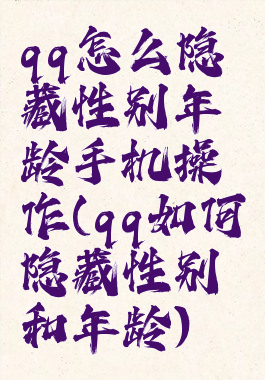 qq怎么隐
藏性别年
龄手机操
作(qq如何
隐藏性别
和年龄)